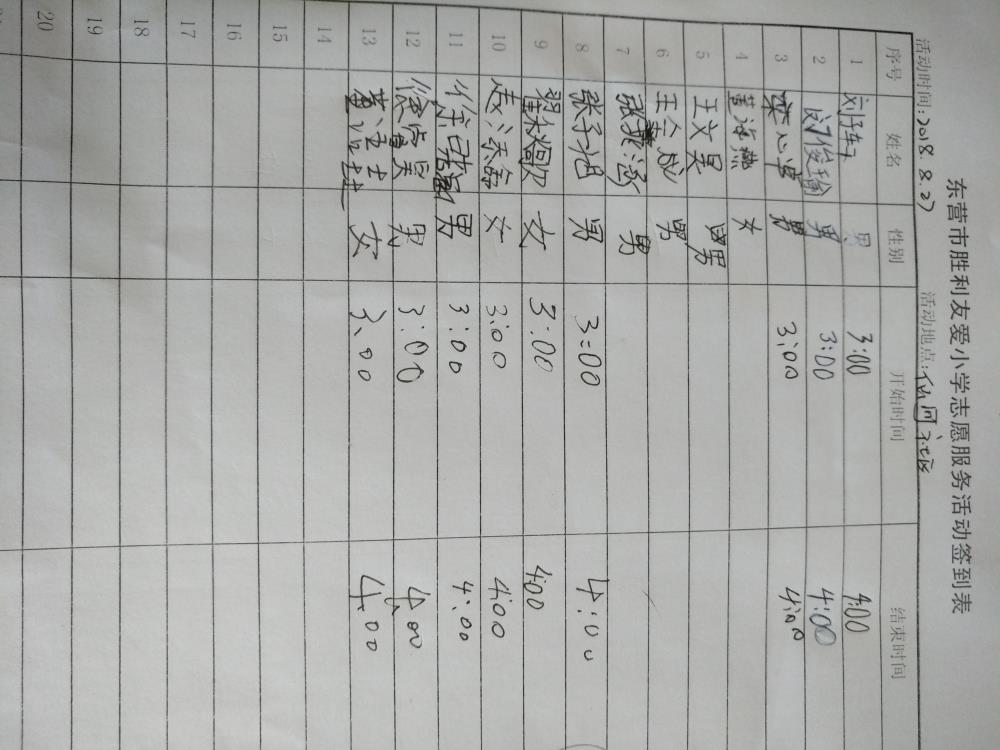 东营市胜利友爱小学志愿服务活动签到表
活动时间:2018.8.27 活动地点:仙河社区
序号 姓名 性别 开始时间 结束时间
1 男 3:00 4:00
2 刘俊瑜 男 3:00 4:00
3 男 3:00 4:00
4 董海燕 女
5 王文昊 男
6 王 男
7 张 涵 男
8 张子旭 男 3:00 4:00
9 翟 女 3:00 4:00
10 女 3:00 4:00
11 徐 男 3:00 4:00
12 徐 昊 男 3:00 4:00
13 黄 女 3:00 4:00
14
15
16
17
18
19
20